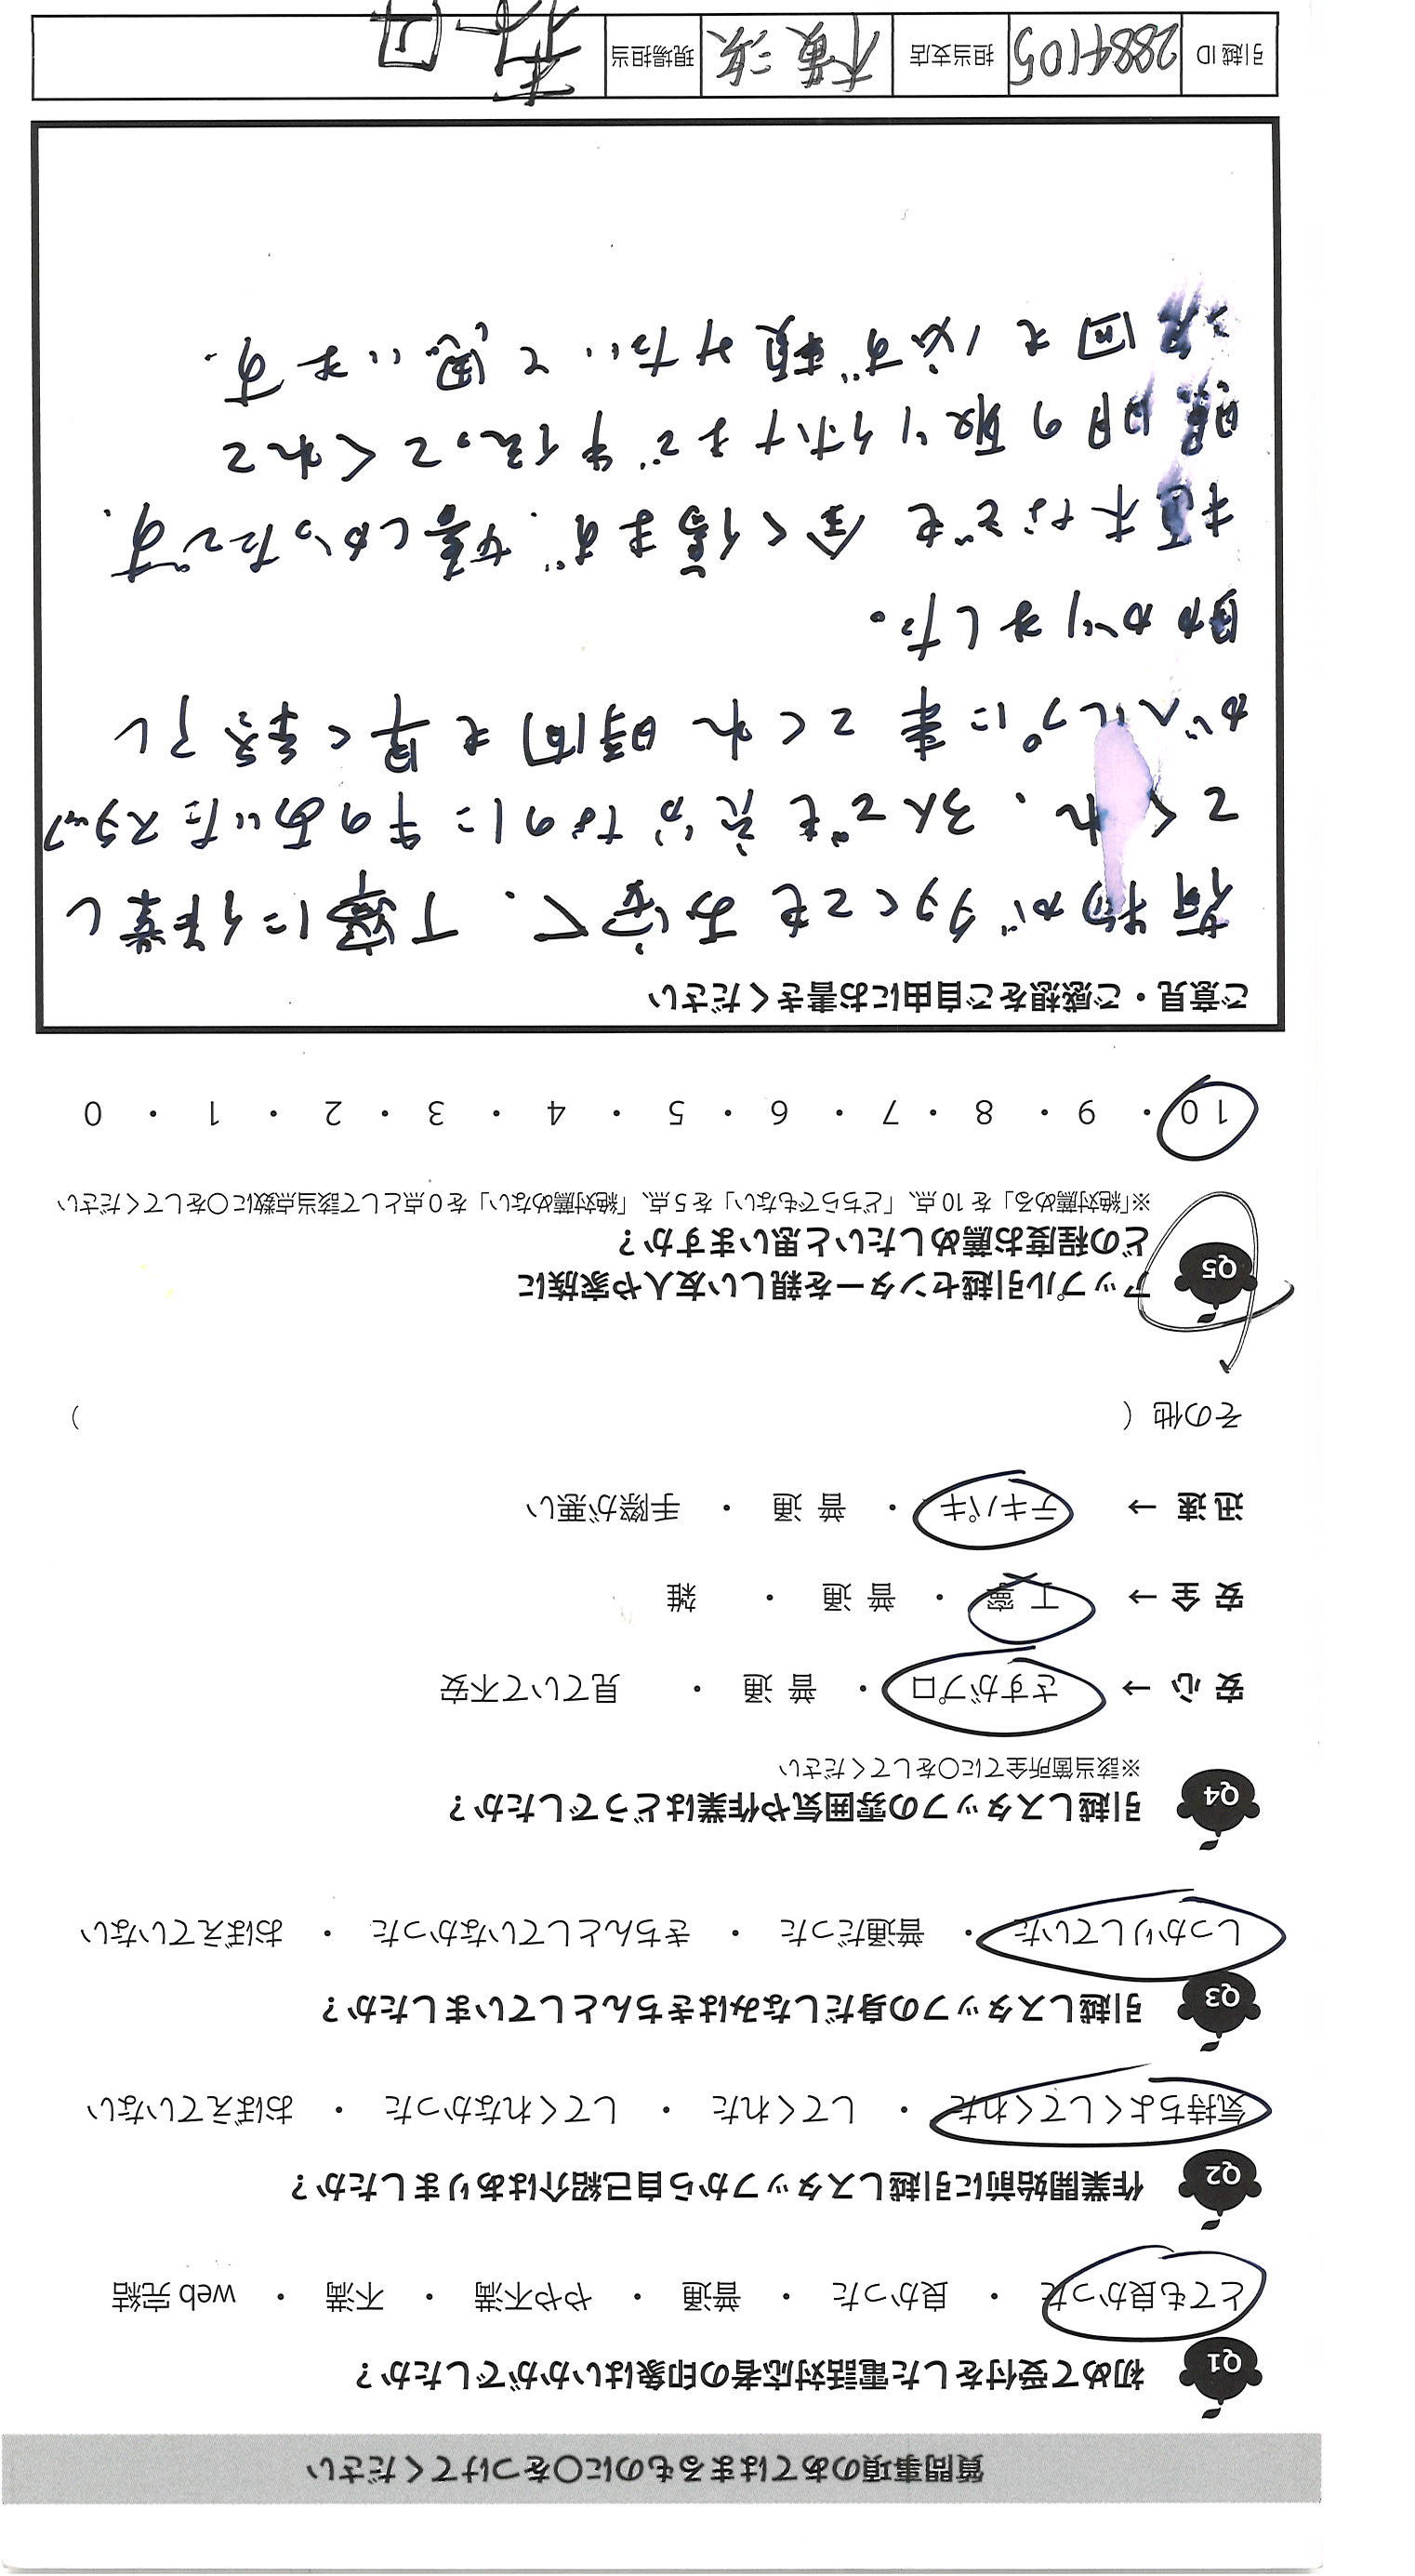 質問事項のあてはまるものに〇をつけてください
Q1 初めて受付をした電話対応者の印象はいかがでしたか？
とても良かった ・ 良かった ・ 普通 ・ やや不満 ・ 不満 ・ web 完結
Q2 作業開始前に引越しスタッフから自己紹介はありましたか？
気持ちよくしてくれた ・ してくれた ・ してくれなかった ・ おぼえていない
Q3 引越しスタッフの身だしなみはきちんとしていましたか？
しっかりしていた ・ 普通だった ・ きちんとしていなかった ・ おぼえていない
Q4 引越しスタッフの雰囲気や作業はどうでしたか？
※該当箇所全てに〇をしてください
安 心 → さすがプロ ・ 普 通 ・ 見ていて不安
安 全 → 丁 寧 ・ 普 通 ・ 雑
迅 速 → テキパキ ・ 普 通 ・ 手際が悪い
その他（ ）
Q5 アップル引越センターを親しい友人や家族に
どの程度お薦めしたいと思いますか？
※「絶対薦める」を 10 点、「どちらでもない」を 5 点、「絶対薦めない」を 0 点として該当点数に〇をしてください
10 ・ 9 ・ 8 ・ 7 ・ 6 ・ 5 ・ 4 ・ 3 ・ 2 ・ 1 ・ 0
ご意見・ご感想をご自由にお書きください
荷物が多くてもお安く、丁寧に作業し
てくれ、3人でも充分なのに手のあいたスタッフ
がヘルプに来てくれ時間も早く終了し
助かりました。
植木なども全く傷まず、嬉しかったです。
照明の取り付けまで手伝ってくれて
次回も必ず頼みたいと思います。
引越 ID 2884105 担当支店 横浜 現場担当 森田